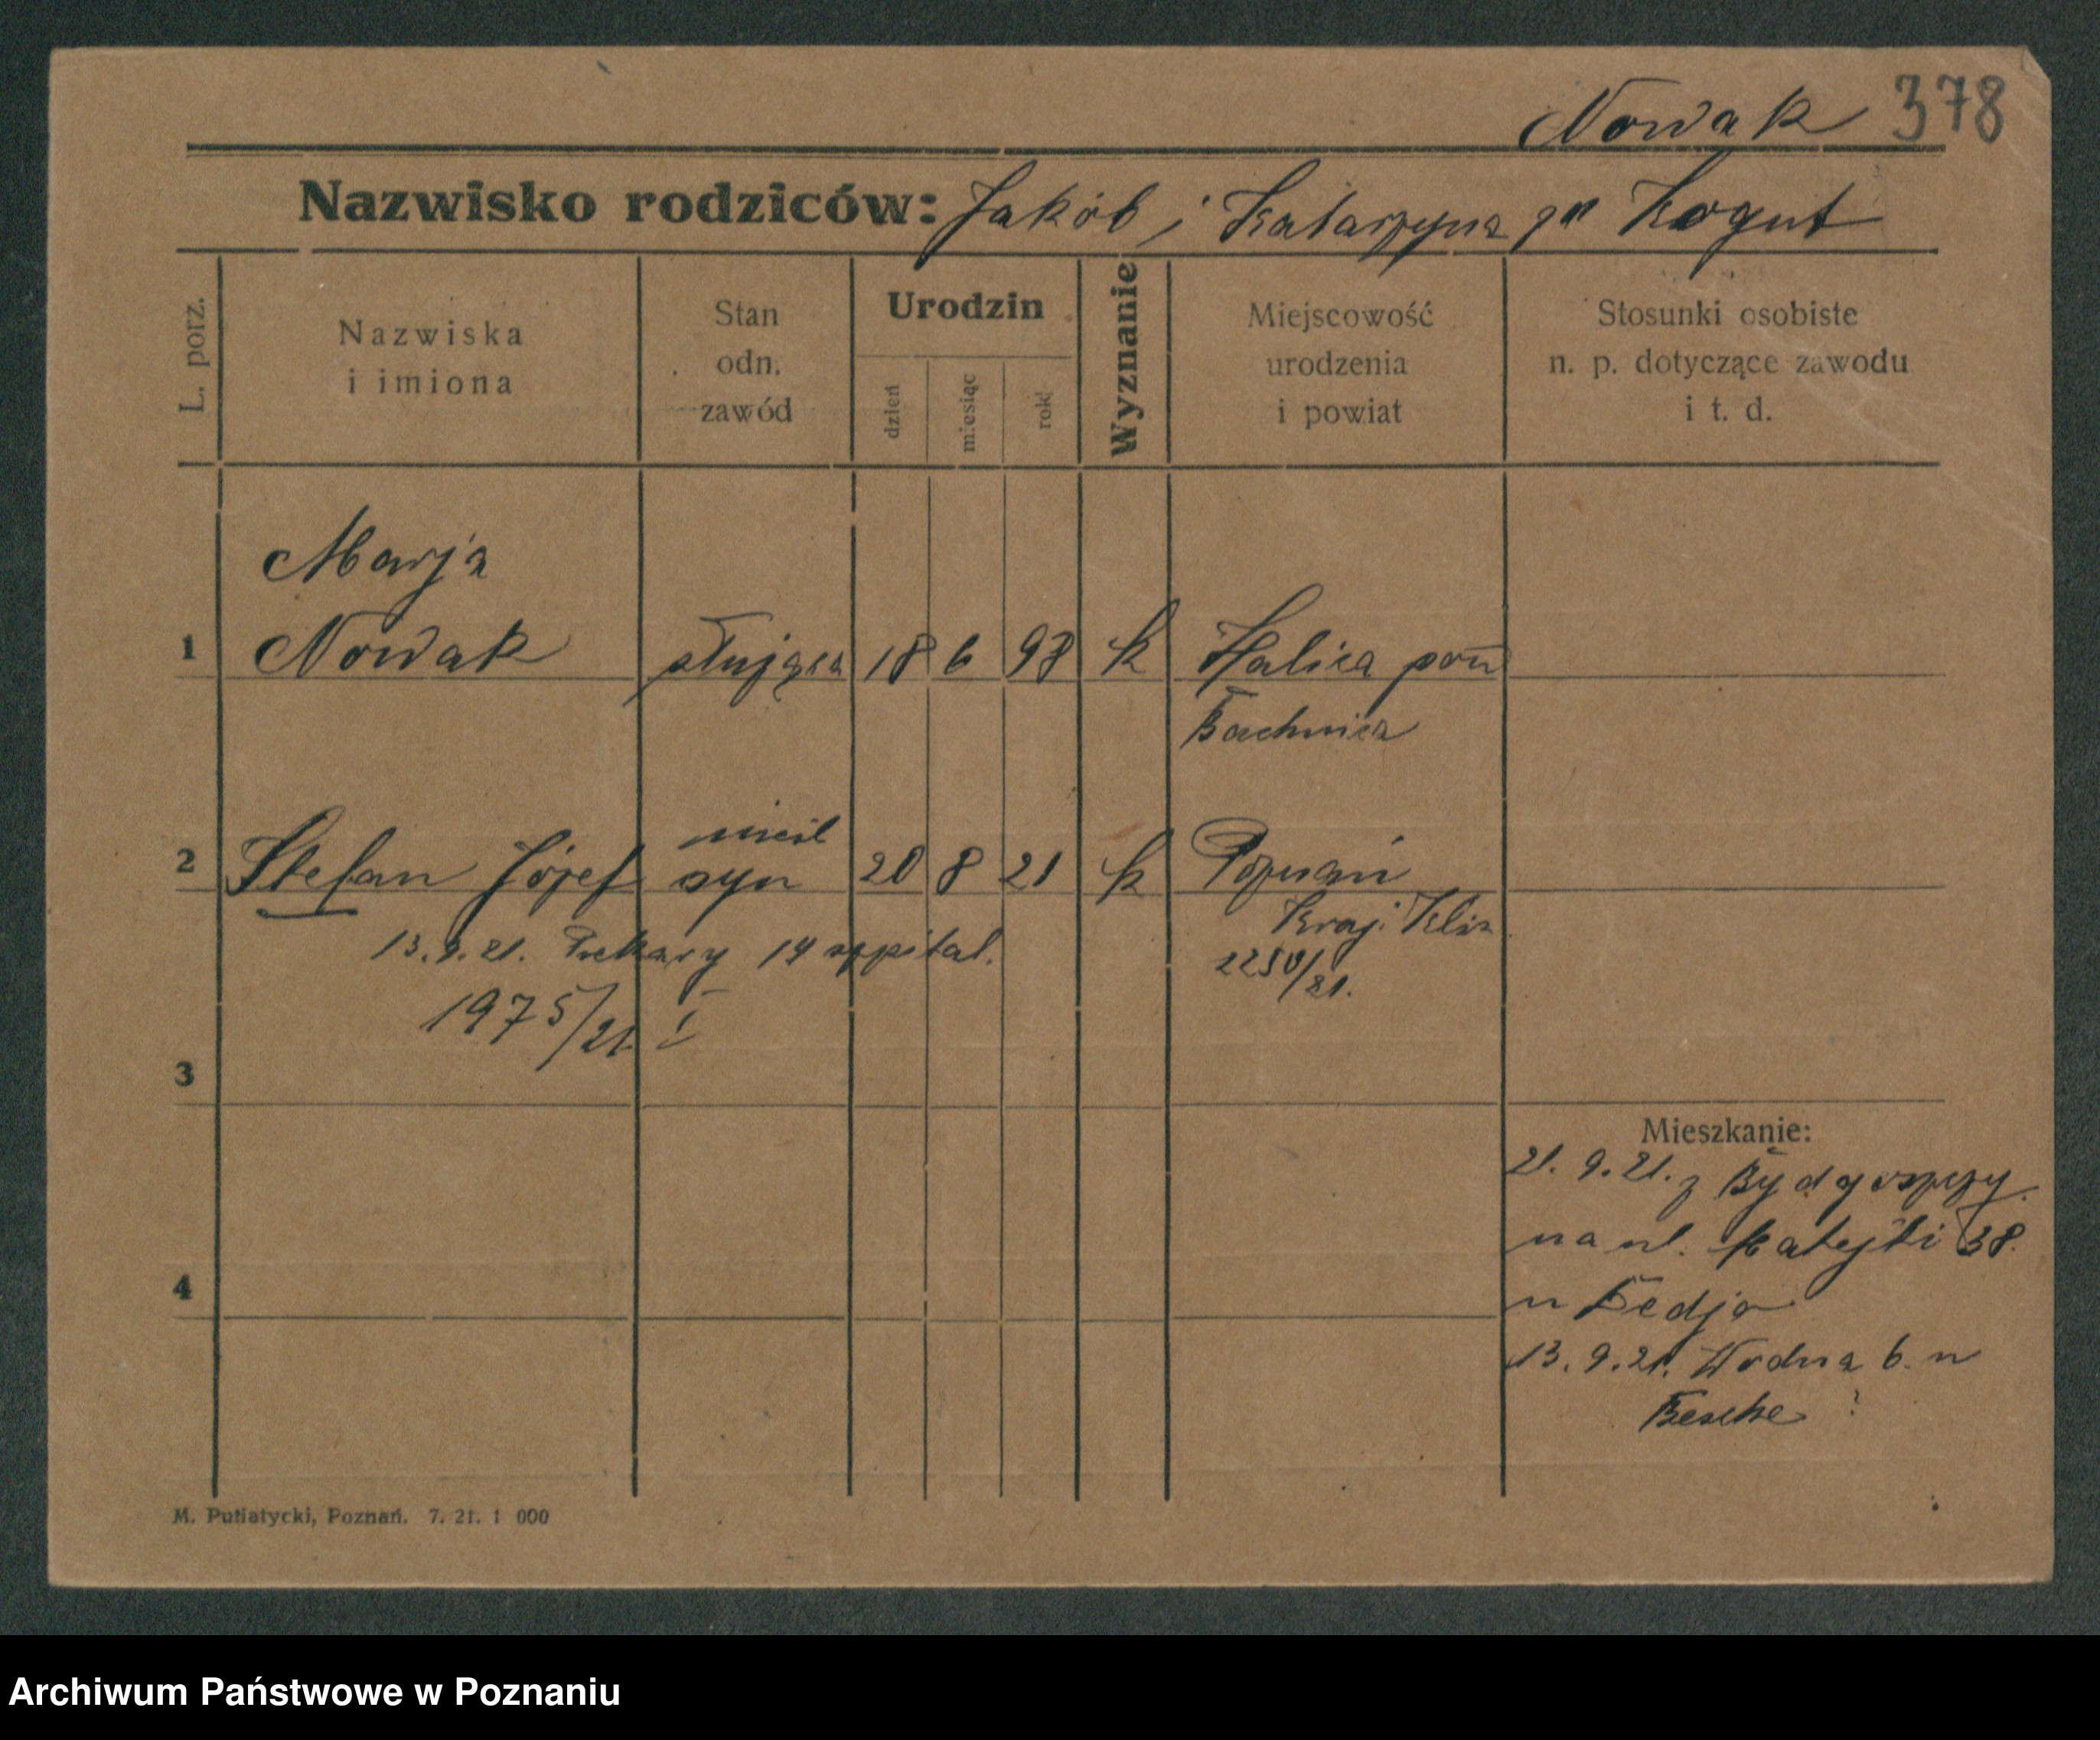 Nowak 378
Nazwisko rodziców: Jakób i Katarzyna zd Kogut
L. porz.
Nazwiska
i imiona
Stan
odn.
zawód
Urodzin
dzień
miesiąc
rok
Wyznanie
Miejscowość
urodzenia
i powiat
Stosunki osobiste
n. p. dotyczące zawodu
i t. d.
Marja
1 Nowak służąca 18 6 98 k Halica pow
Bochnia
nieśl
2 Stefan Józef syn 20 8 21 k Poznań
Kraj. Klin
13.9.21. Piekary 14 szpital.
2250/21.
1975/21 I
3
Mieszkanie:
21. 9. 21. z Bydgoszczy
na ul. Matejki 38.
4
u
13. 9. 21. Wodna 6. u
Beschke ?
M. Putiatycki, Poznań. 7. 21. 1 000
Archiwum Państwowe w Poznaniu